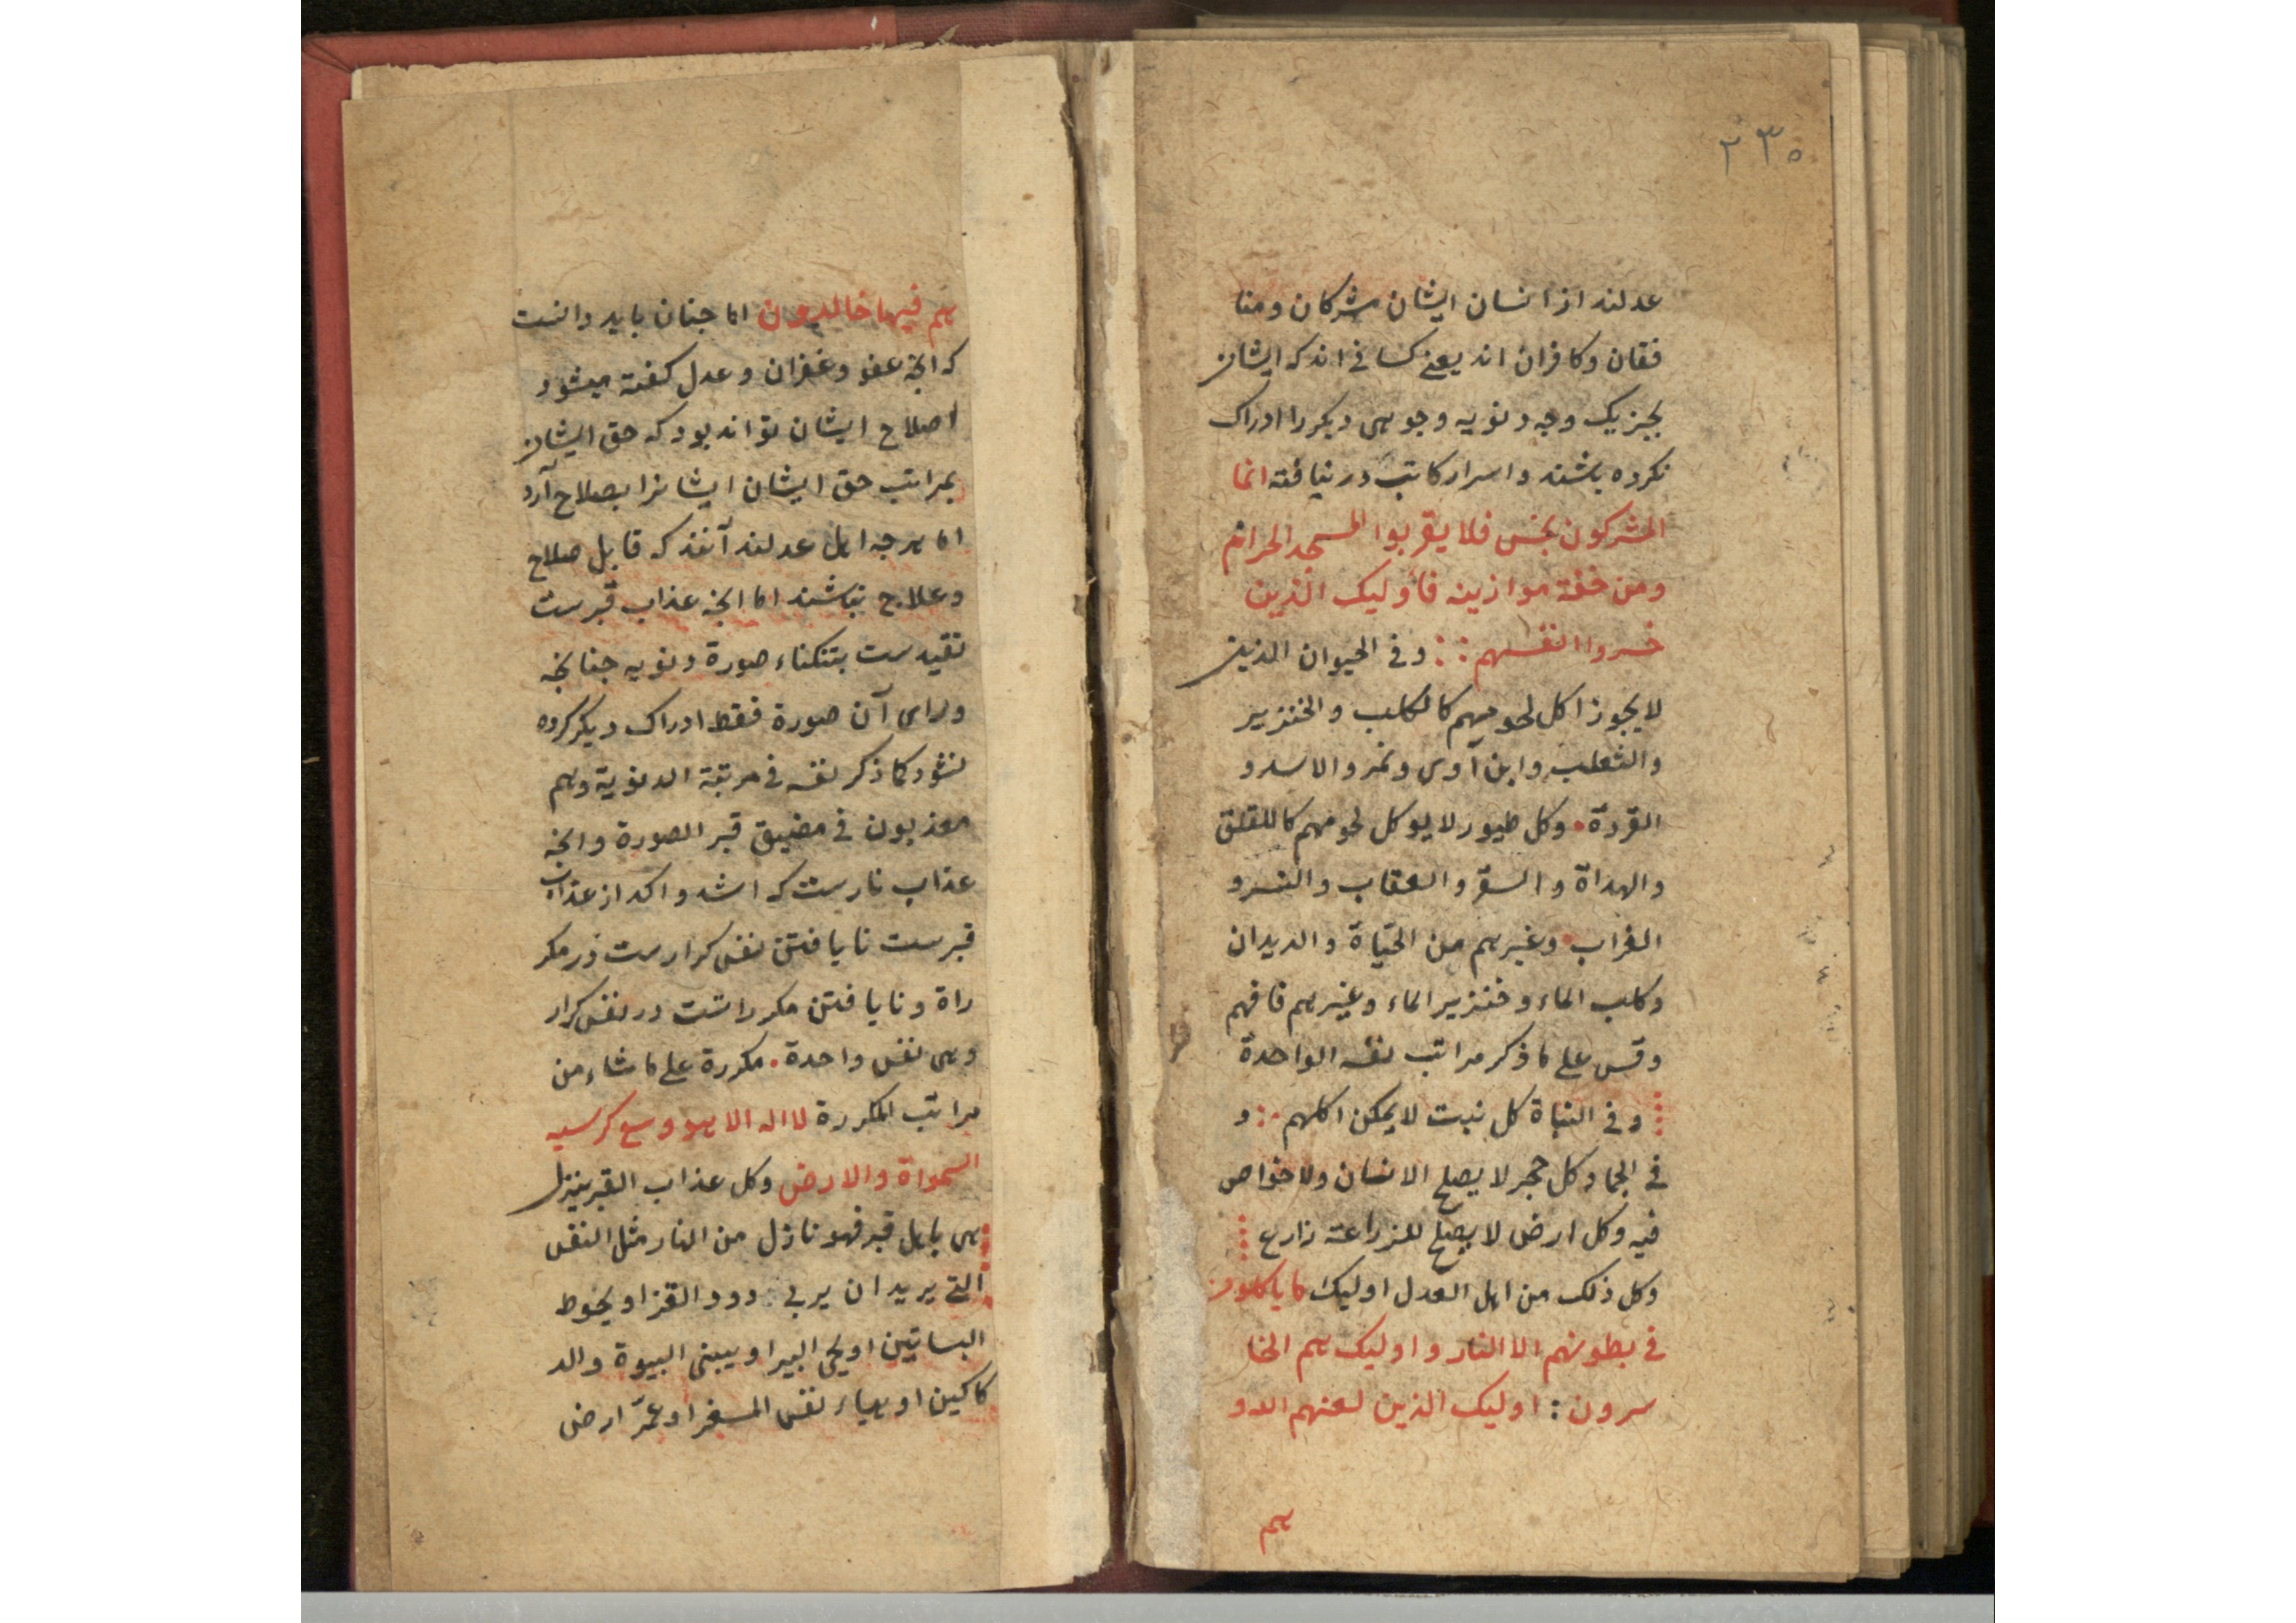 ۲۳۰
عدلند از انسان ایشان مشرکان و منا
فقان و کافران اند یعنی کسانی اند که ایشان
بجز یک وجه دنویه وجوهی دیکر را ادراک
نکرده باشند و اسرار کاتب در نیافته انما
المشرکون نجس فلا یقربوا المسجد الحرام
ومن خفة موازینه فأولیک الذین
خسروا انفسهم : : وفی الحیوان الذین
لا یجوز اکل لحومهم کالکلب والخنزیر
والثعلب وابن آوی ونمر والاسد و
القردة • وکل طیور لا یوکل لحومهم کاللقلق
والهداة والسقر والعقاب والنسر و
الغراب • وغیرهم من الحیاة والدیدان
وکلب الماء وخنزیر الماء وغیرهم فافهم
وقس علی ما ذکر مراتب نفسه الواحدة
وفی النباة کل نبت لا یمکن اکلهم : و
فی الجماد کل حجر لا یصلح الانسان ولا خواص
فیه وکل ارض لا یصلح للزراعة زارع
وکل ذلک من اهل العدل اولیک ما یاکلون
فی بطونهم الا النار واولیک هم الخا
سرون : اولیک الذین لعنهم الدو
هم
هم فیها خالدون اما جنان باید دانست
که انچه عفو و غفران و عدل کفته میشود
اصلاح ایشان تواند بود که حق ایشان
بمراتب حق ایشان ایشانرا بصلاح آرد
اما هرچه اهل عدلند آنند که قابل صلاح
و علاج نباشند اما انچه عذاب قبرست
تقیدست بتنکناء صورة دنویه جنانچه
ورای آن صورة فقط ادراک دیکر کرده
نشود کما ذکر نفسه فی مرتبة الدنویة وهم
معذبون فی مضیق قبر الصورة وانچه
عذاب نارست که اشد و اکد از عذاب
قبرست نایافتن نفس کرارست در مکر
راة و نایافتن مکرراتست در نفس کرار
وهی نفس واحدة • مکررة علی ما شاء من
مراتب المکررة لا اله الا هو وسع کرسیه
السمواة والارض وکل عذاب القبر ینزل
هی باهل قبر فهو نازل من النار مثل النفس
التی یرید ان یربی دود القز او یحوط
البساتین او یحیی البیر او یبنی البیوة والد
کاکین او یهیاء نفس المسفر او عمّر ارض